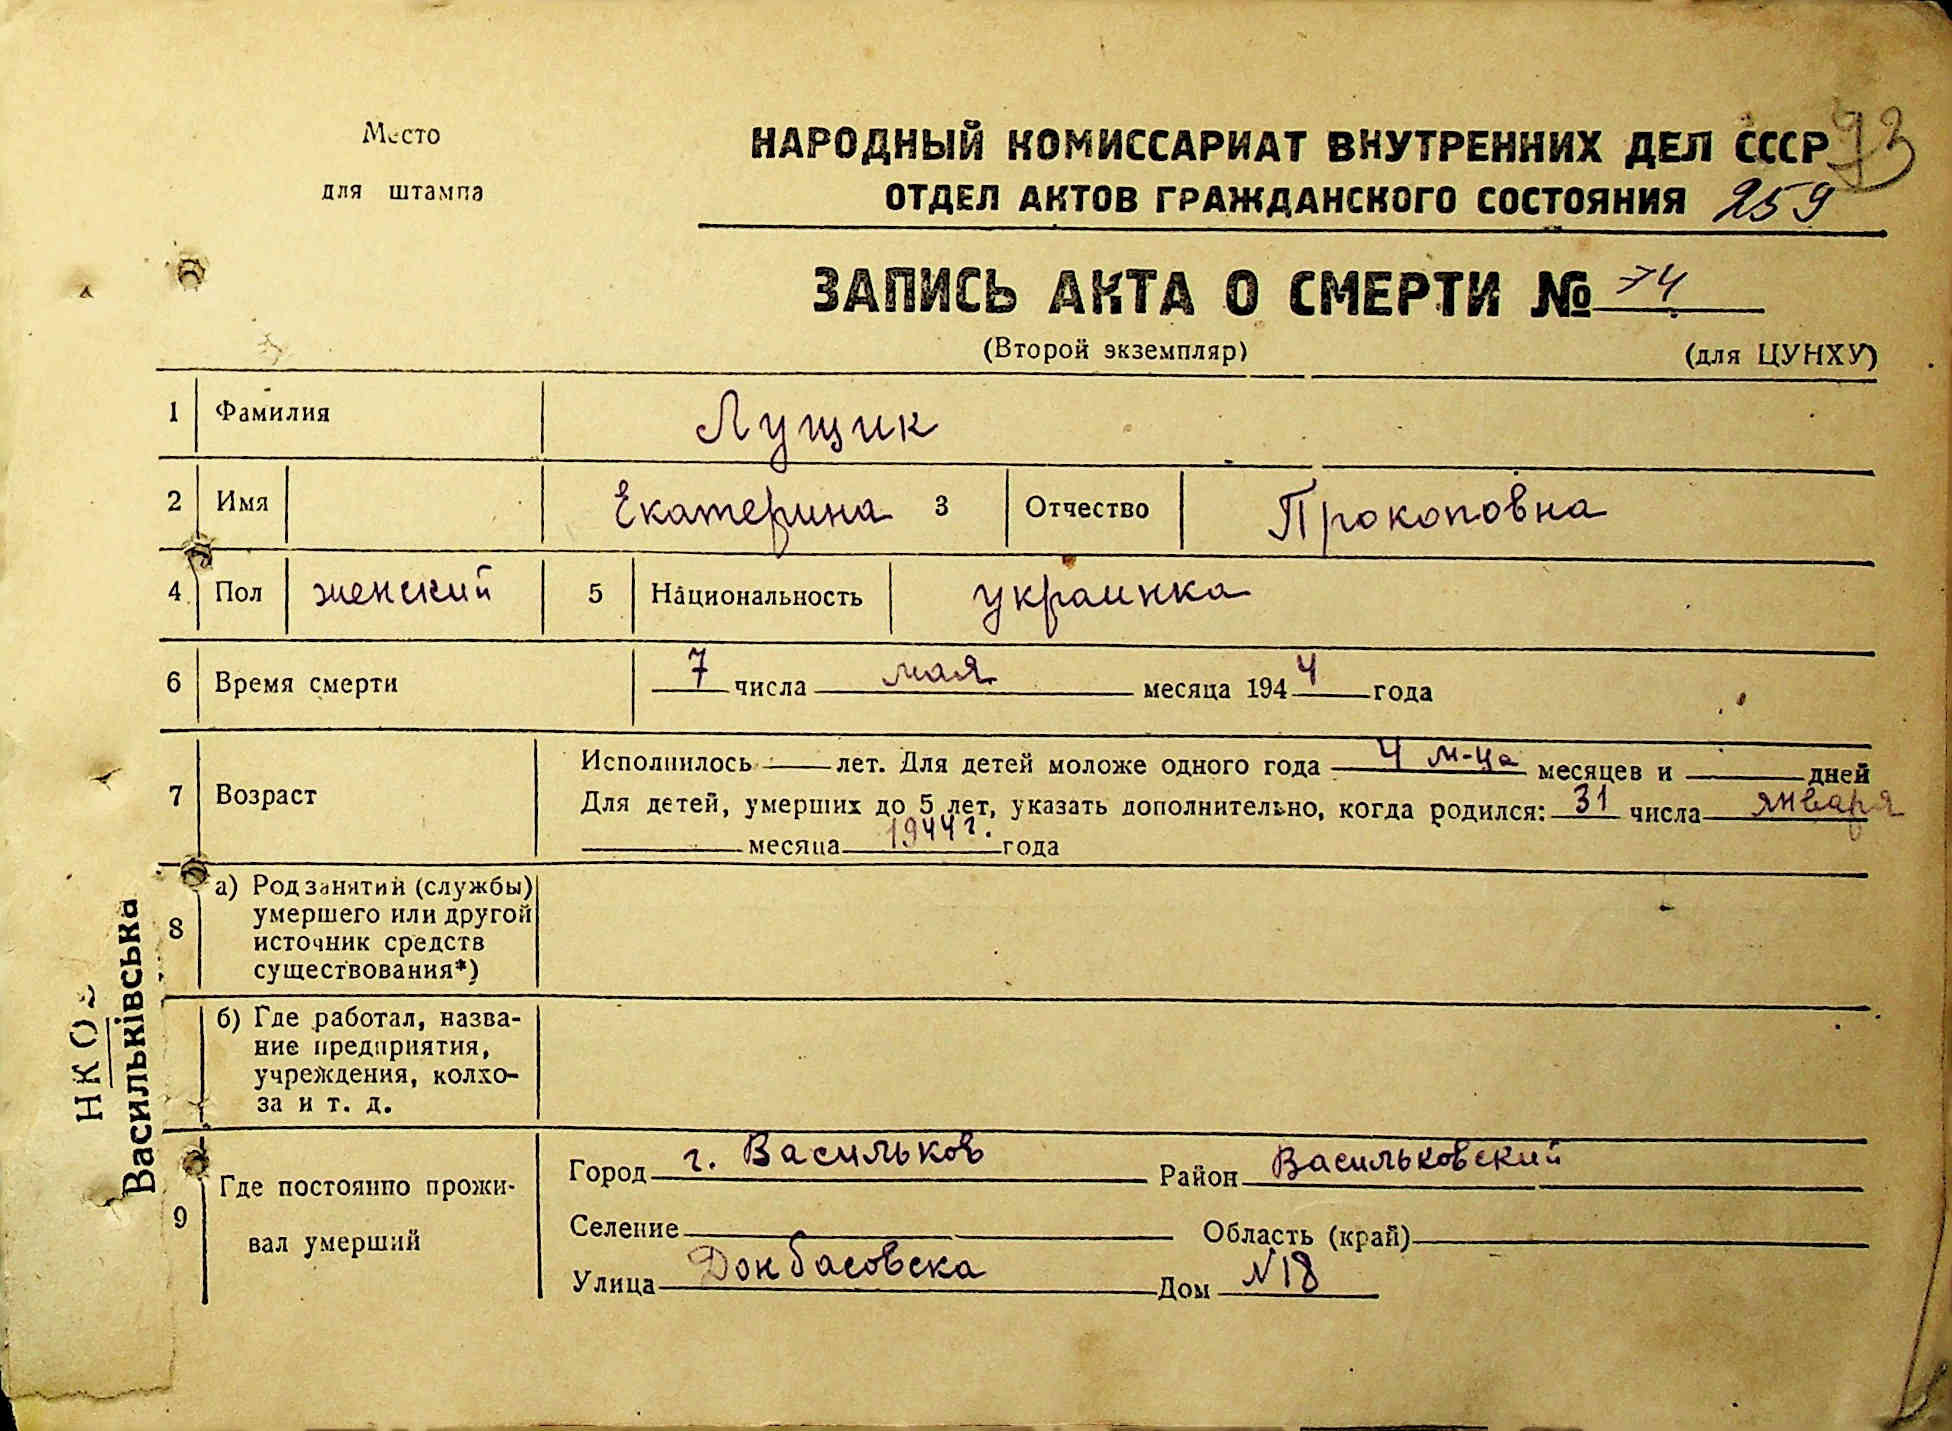 Место
для штампа
НАРОДНЫЙ КОМИССАРИАТ ВНУТРЕННИХ ДЕЛ СССР
73
ОТДЕЛ АКТОВ ГРАЖДАНСКОГО СОСТОЯНИЯ 259
ЗАПИСЬ АКТА О СМЕРТИ № 74
(Второй экземпляр) (для ЦУНХУ)
1 Фамилия Лущик
2 Имя Екатерина 3 Отчество Прокоповна
4 Пол женский 5 Национальность украинка
6 Время смерти 7 числа мая месяца 1944 года
7 Возраст
Исполнилось — лет. Для детей моложе одного года 4 м-ца месяцев и дней
Для детей, умерших до 5 лет, указать дополнительно, когда родился: 31 числа января
месяца 1944 г. года
8 а) Род занятий (службы)
умершего или другой
источник средств
существования*)
б) Где работал, назва-
ние предприятия,
учреждения, колхо-
за и т. д.
9 Где постоянно прожи-
вал умерший
Город г. Васильков Район Васильковский
Селение Область (край)
Улица Донбасовска Дом №18
НКО
Васильківська